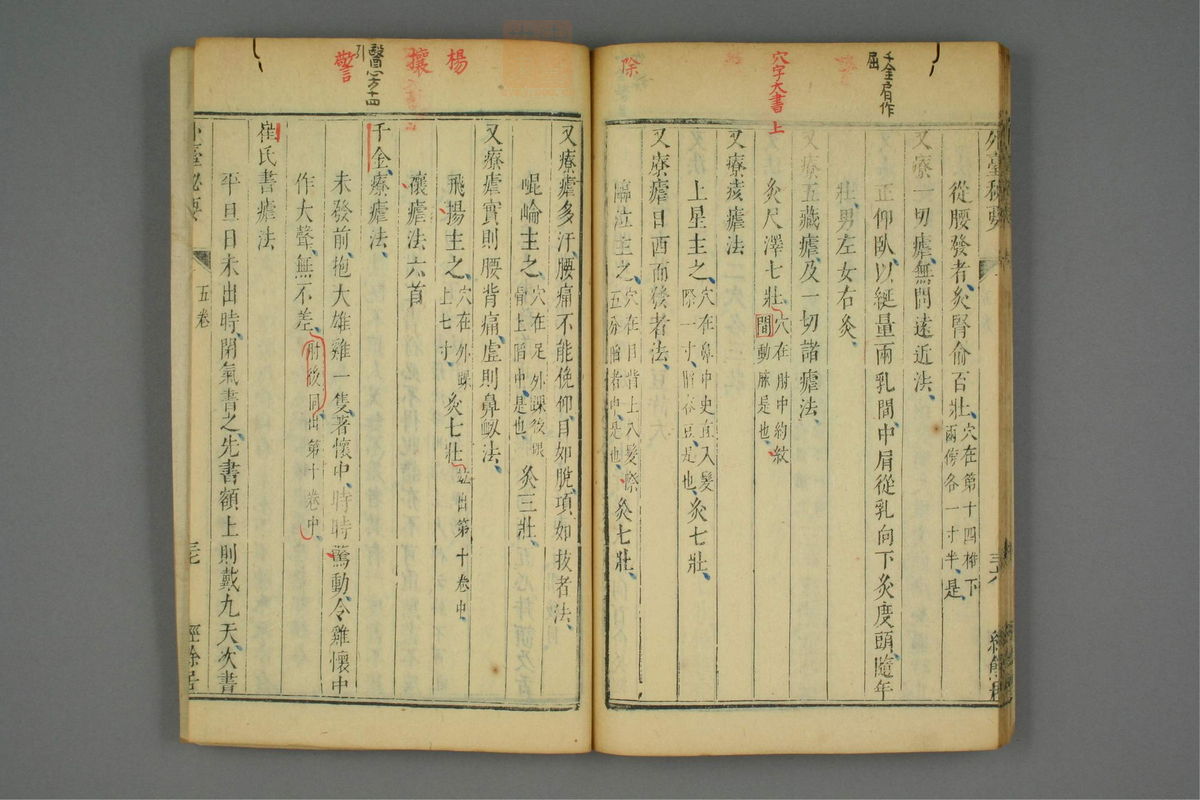 千金肩作
屈
穴字大書
上
除
外臺秘要
從腰發者灸腎俞百壯穴在第十四椎下
兩傍各一寸半是
又療一切瘧無問遠近法
正仰臥以綖量兩乳間中肩從乳向下灸度頭隨年
壯男左女右灸
又療五藏瘧及一切諸瘧法
灸尺澤七壯穴在肘中約紋
間動脉是也
又療痎瘧法
上星主之穴在鼻中史直入髮
際一寸陷容豆是也灸七壯
又療瘧日西而發者法
臨泣主之穴在目眥上入髮際
五分陷者中是也灸七壯
楊
攘
醫心方十四
引
警
又療瘧多汗腰痛不能俛仰目如脫項如拔者法
崐崘主之穴在足外踝後跟
骨上陷中是也灸三壯
又療瘧實則腰背痛虛則鼻衂法
飛揚主之穴在外踝
上七寸灸七壯並出第十卷中
禳瘧法六首
千金療瘧法
未發前抱大雄雞一隻著懷中時時驚動令雞懷中
作大聲無不差肘後同出第十卷中
崔氏書瘧法
平旦日未出時閉氣書之先書額上則戴九天次書
外臺秘要
五卷
三七
經餘居